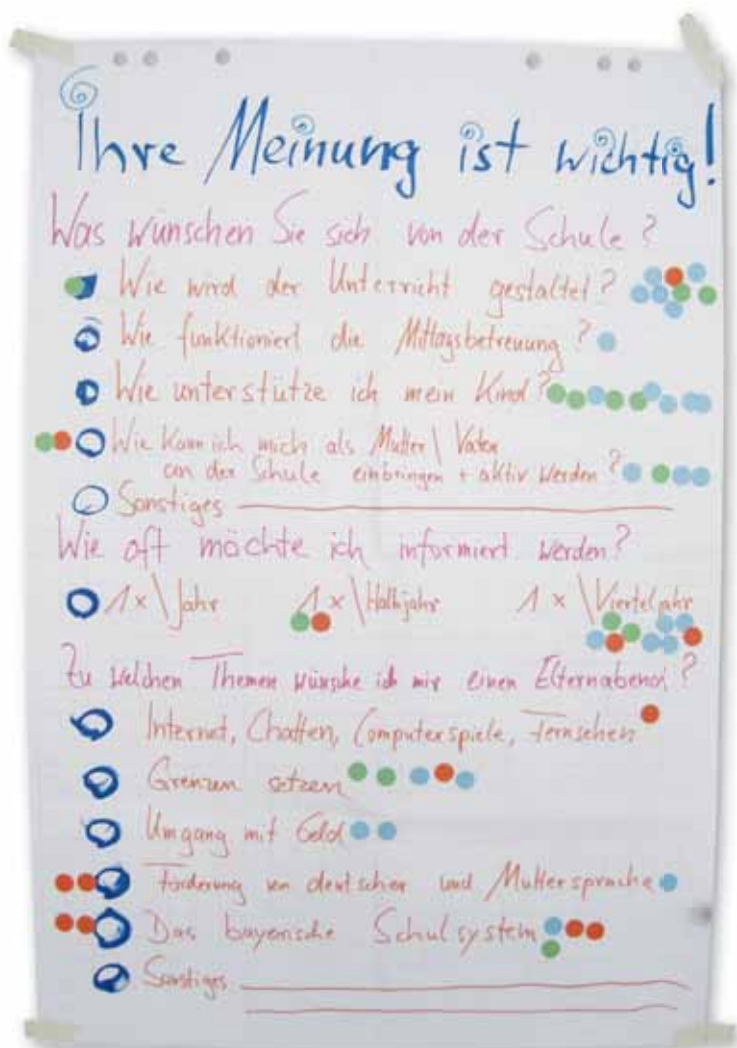 Ihre Meinung ist wichtig!
Was wünschen Sie sich von der Schule?
Wie wird der Unterricht gestaltet?
Wie funktioniert die Mittagsbetreuung?
Wie unterstütze ich mein Kind?
Wie kann ich mich als Mutter \ Vater
an der Schule einbringen + aktiv werden?
Sonstiges
Wie oft möchte ich informiert werden?
1 x \ Jahr 1 x \ Halbjahr 1 x \ Vierteljahr
Zu welchen Themen wünsche ich mir einen Elternabend?
Internet, Chatten, Computerspiele, Fernsehen
Grenzen setzen
Umgang mit Geld
Förderung von deutscher und Muttersprache
Das bayerische Schulsystem
Sonstiges